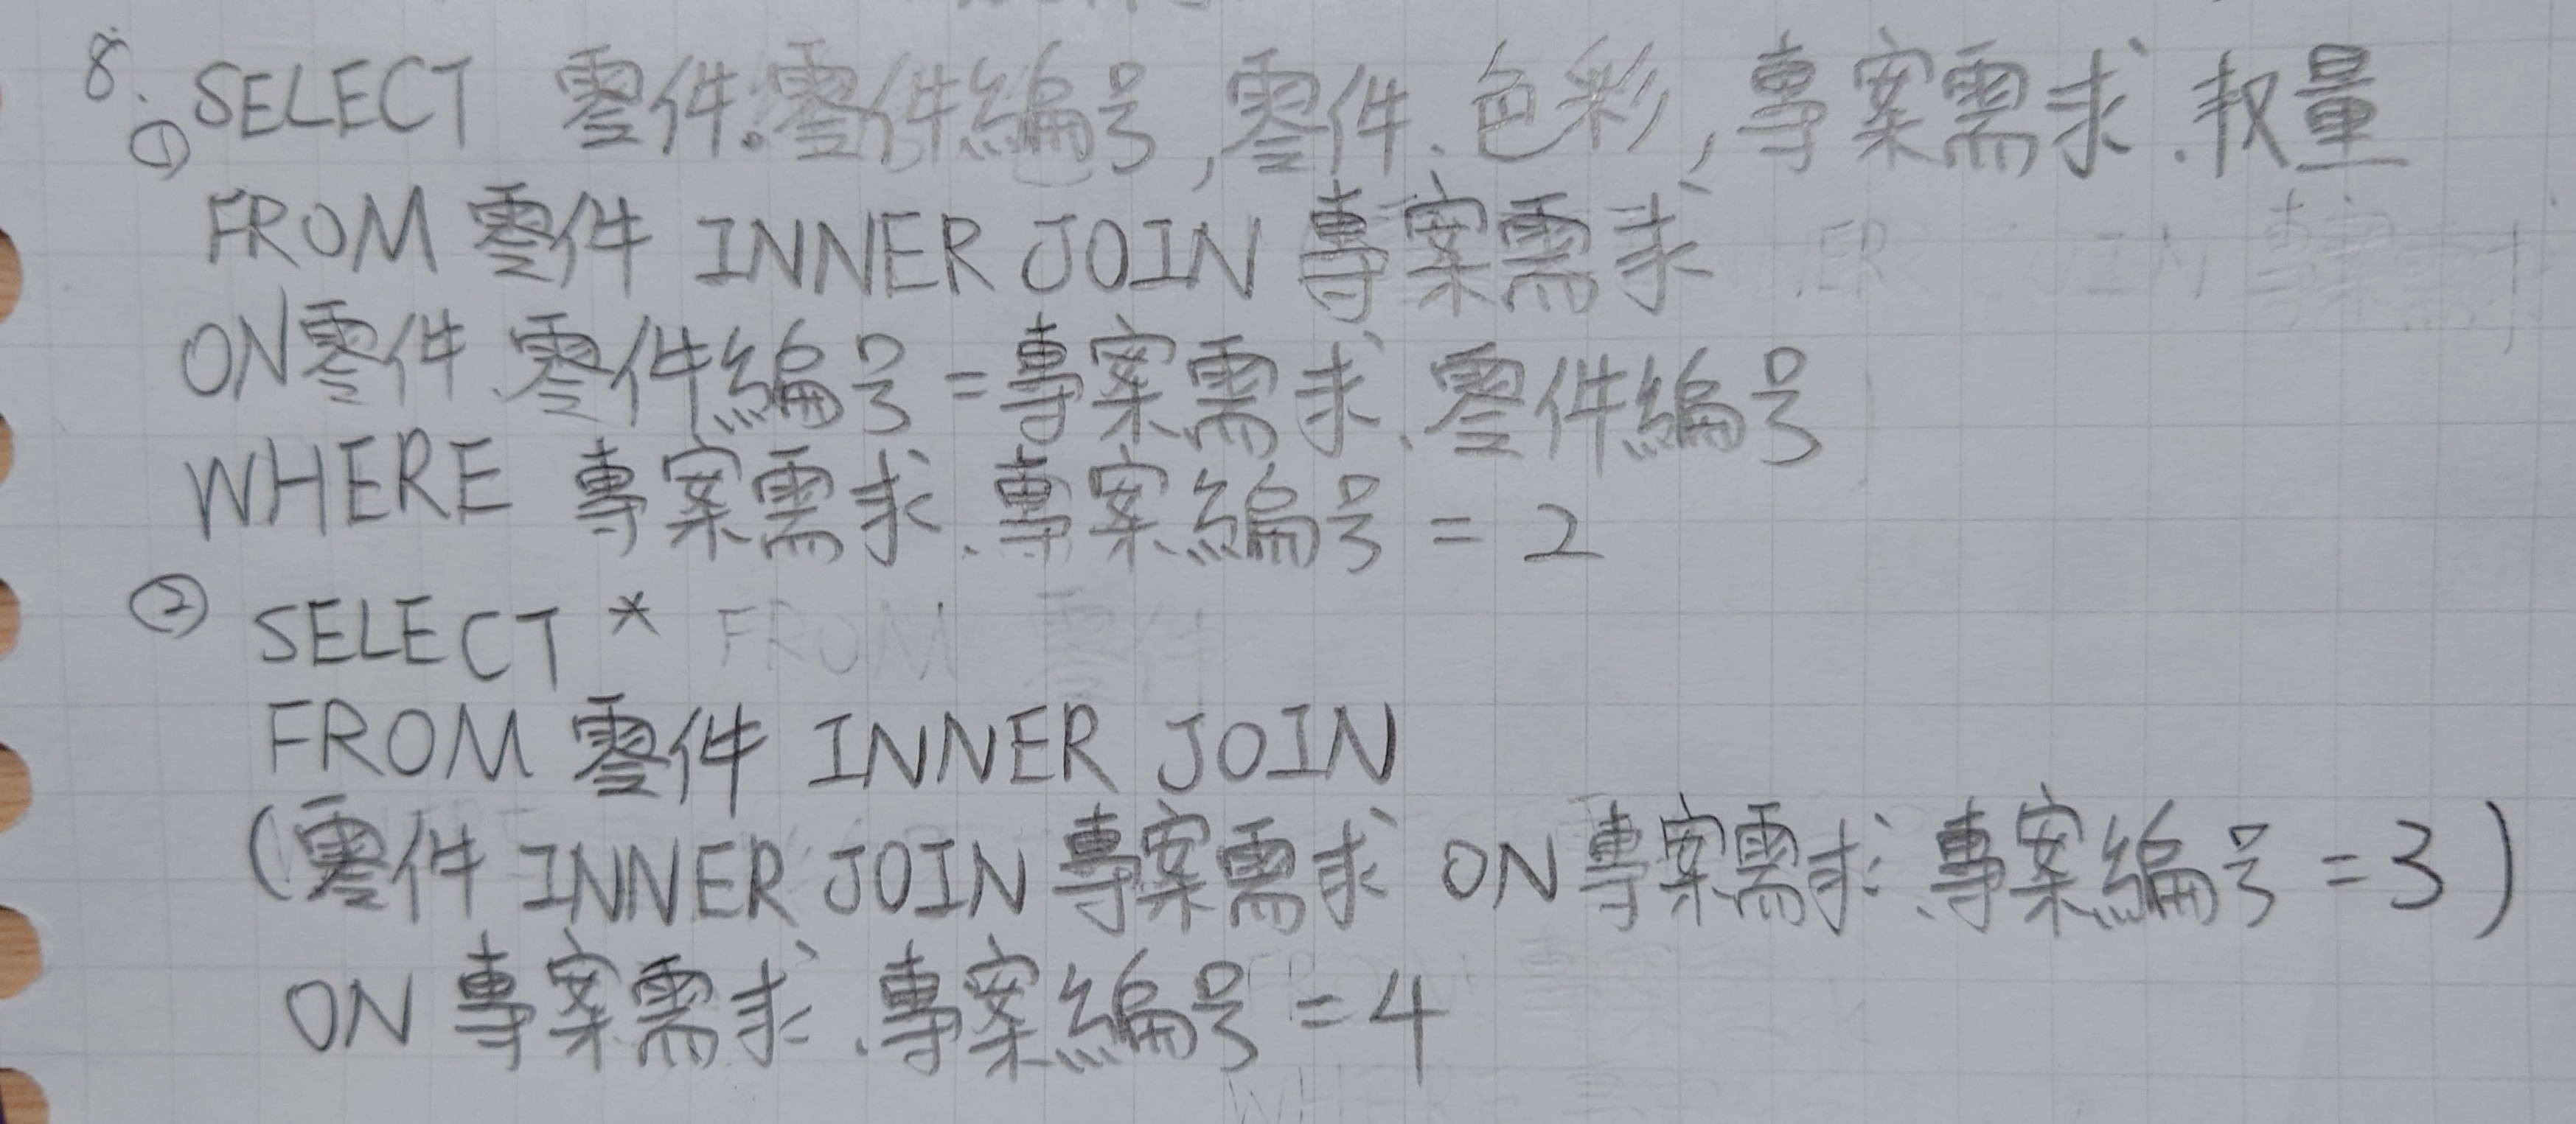 8.
① SELECT 零件.零件編号,零件.色彩,專案需求.数量
FROM 零件 INNER JOIN 專案需求
ON零件.零件編号=專案需求.零件編号
WHERE 專案需求.專案編号=2
② SELECT *
FROM 零件 INNER JOIN
(零件 INNER JOIN 專案需求 ON專案需求.專案編号=3)
ON 專案需求.專案編号=4